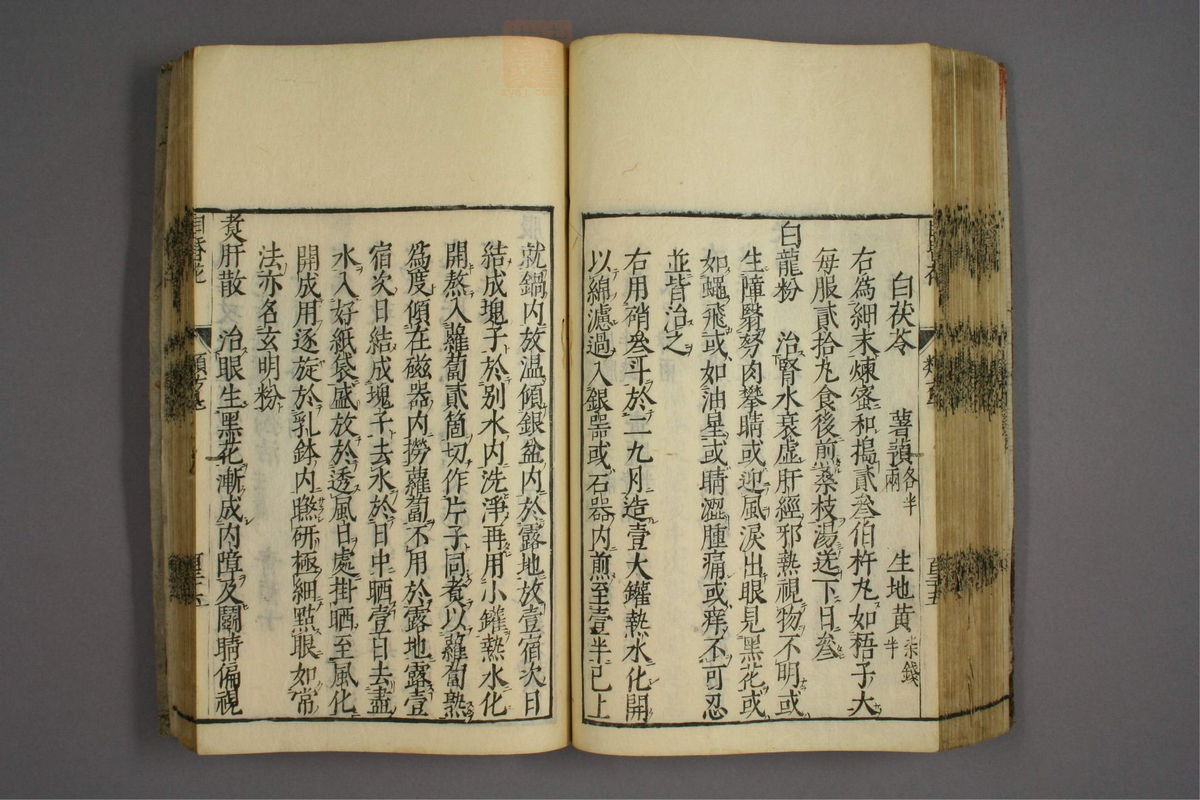 白茯苓 薯蕷各半兩 生地黄柒錢半
右爲細末煉蜜和搗貳叁伯杵丸如梧子大
每服貳拾丸食後煎茶枝湯送下日叁
白龍粉 治腎水衰虚肝經邪熱視物不明或
生障翳努肉攀睛或迎風淚出眼見黑花或
如蠅飛或如油星或睛澀腫痛或痒不可忍
並皆治之
右用硝叁斗於二九月造壹大鑵熱水化開
以綿濾過入銀器或石器内煎至壹半已上
就鍋内放温傾銀盆内於露地放壹宿次日
結成塊子於别水内洗淨再用小鑵熱水化
開熬入蘿蔔貳箇切作片子同煮以蘿蔔熟
爲度傾在磁器内撈蘿蔔不用於露地露壹
宿次日結成塊子去水於日中晒壹日去盡
水入好紙袋盛放於透風日處掛晒至風化
開成用逐旋於乳鉢内研極細點眼如常
法亦名玄明粉
煮肝散 治眼生黑花漸成内障及鬭睛偏視